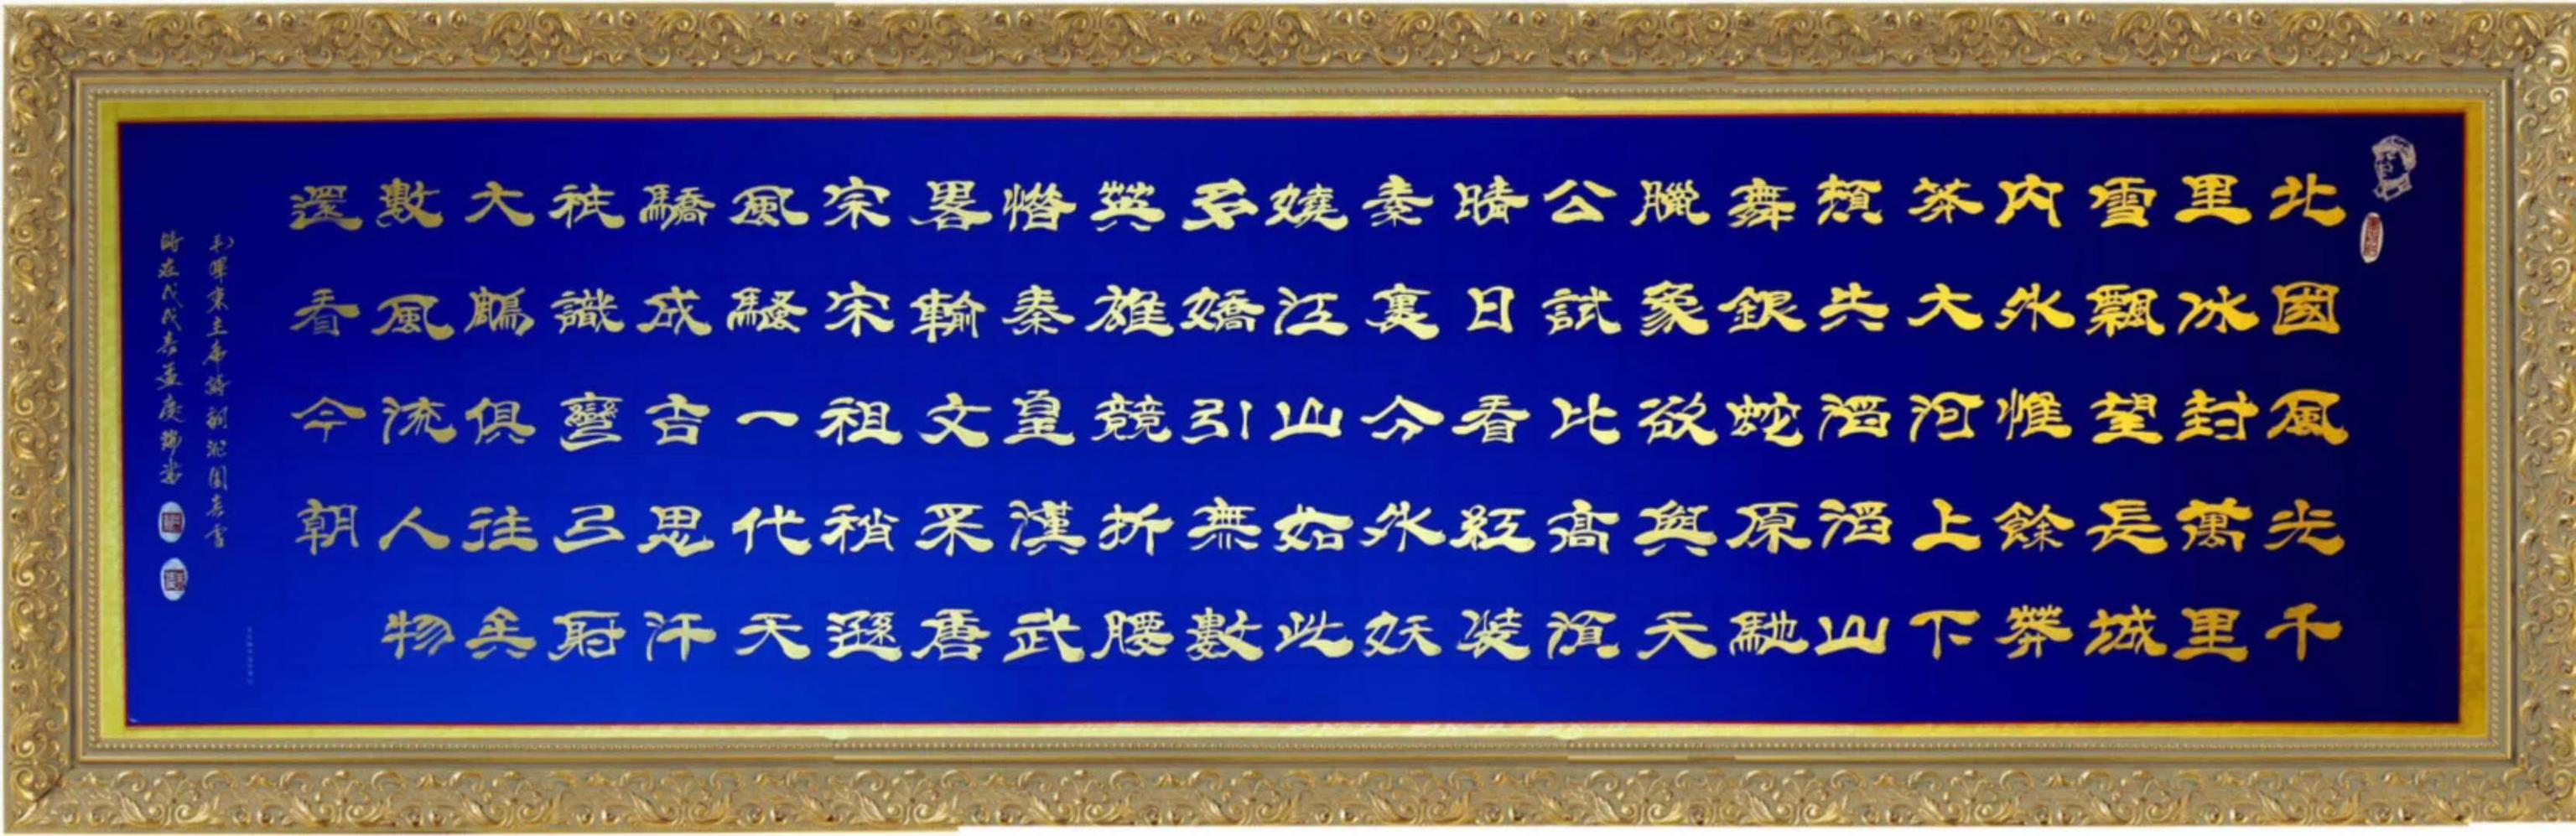 北國風光千
里冰封萬里
雪飄望長城
内外惟餘莽
莽大河上下
頓失滔滔山
舞銀蛇原馳
臘象欲與天
公試比高須
晴日看紅裝
素裹分外妖
嬈江山如此
多嬌引無數
英雄競折腰
惜秦皇漢武
畧輸文采唐
宗宋祖稍遜
風騷一代天
驕成吉思汗
祇識彎弓射
大鵰俱往矣
數風流人物
還看今朝
毛澤東主席詩詞沁園春雪
時在戊戌春孟慶瑞書